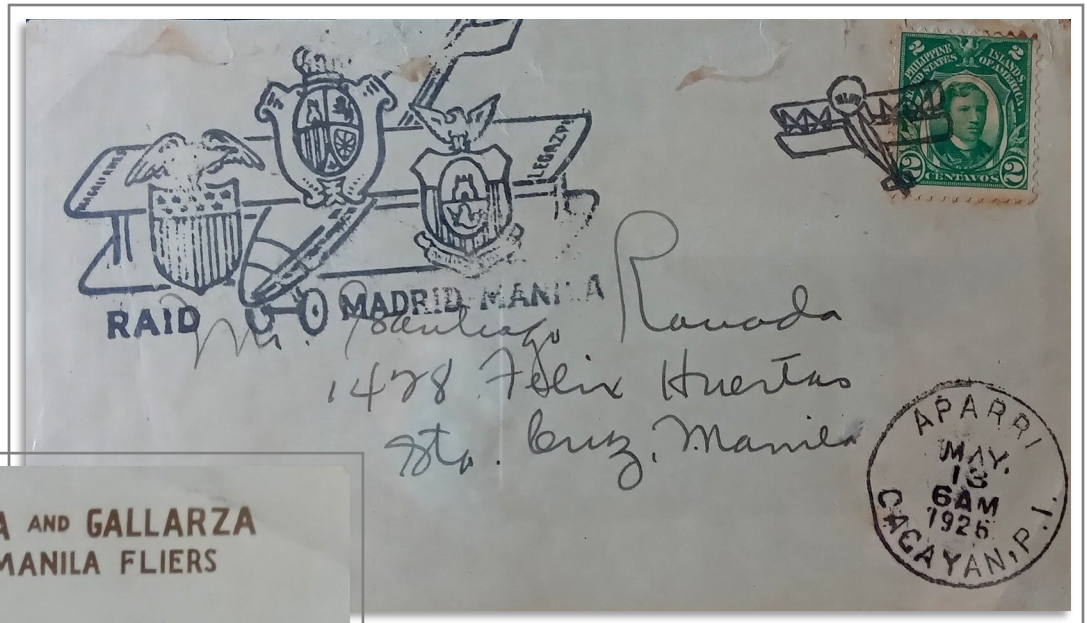 MAGALLANES
LEGAZPI
RAID MADRID-MANILA
2 2
PHILIPPINE ISLANDS
UNITED STATES OF AMERICA
2 CENTAVOS 2
Mr. Santiago Ranada
1478 Felix Huertas
Sta. Cruz, Manila
APARRI
MAY.
13
6AM
1926
CAGAYAN, P.I.
A AND GALLARZA
MANILA FLIERS